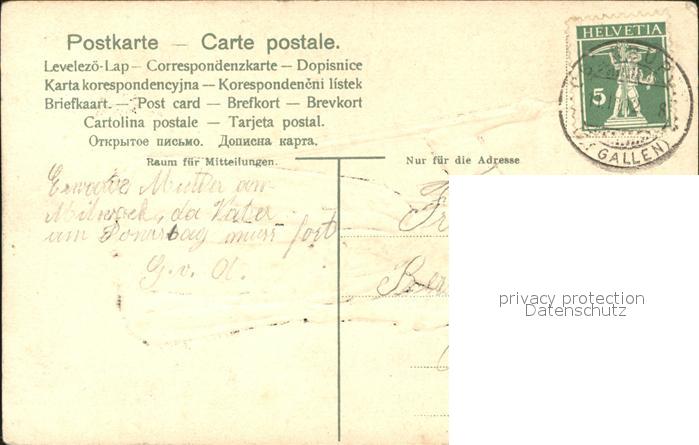 Postkarte — Carte postale.
Levelező-Lap — Correspondenzkarte — Dopisnice
Karta korespondencyjna — Korespondenční lístek
Briefkaart. — Post card — Brefkort — Brevkort
Cartolina postale — Tarjeta postal.
Открытое письмо. Дописна карта.
Raum für Mitteilungen.
Nur für die Adresse
HELVETIA
5
(ST GALLEN)
Erwarte Mutter am
Mittwoch, da Vater
am Donnerstag muss fort
G. v. A.
Fr
privacy protection
Datenschutz